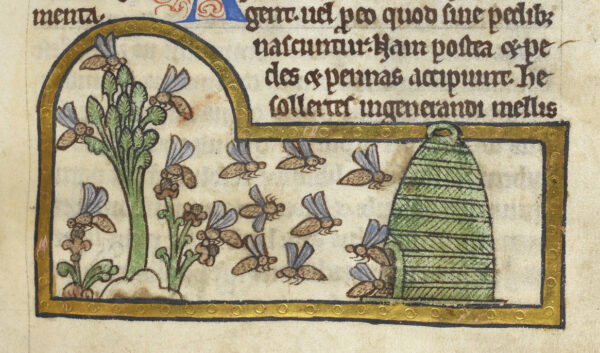 menta. Agent. uel ꝓeo quod sine pedibꝫ
nascuntur. Nam postea & pe-
des & pennas accipiunt. he
sollertes ingenerandi mellis